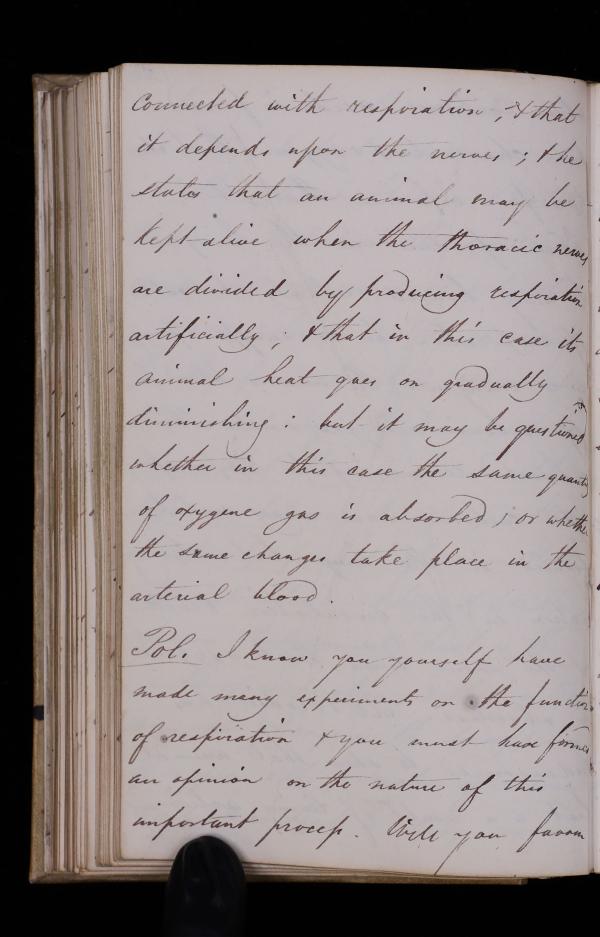 connected with respiration, & that
it depends upon the nerves; & he
states that an animal may be
kept alive when the thoracic nerves
are divided by producing respiration
artificially; & that in this case its
animal heat goes on gradually
diminishing: but it may be questioned
whether in this case the same quantity
of oxygene gas is absorbed; or whether
the same changes take place in the
arterial blood.
Pol. I know you yourself have
made many experiments on the function
of respiration & you must have formed
an opinion on the nature of this
important process. Will you favour